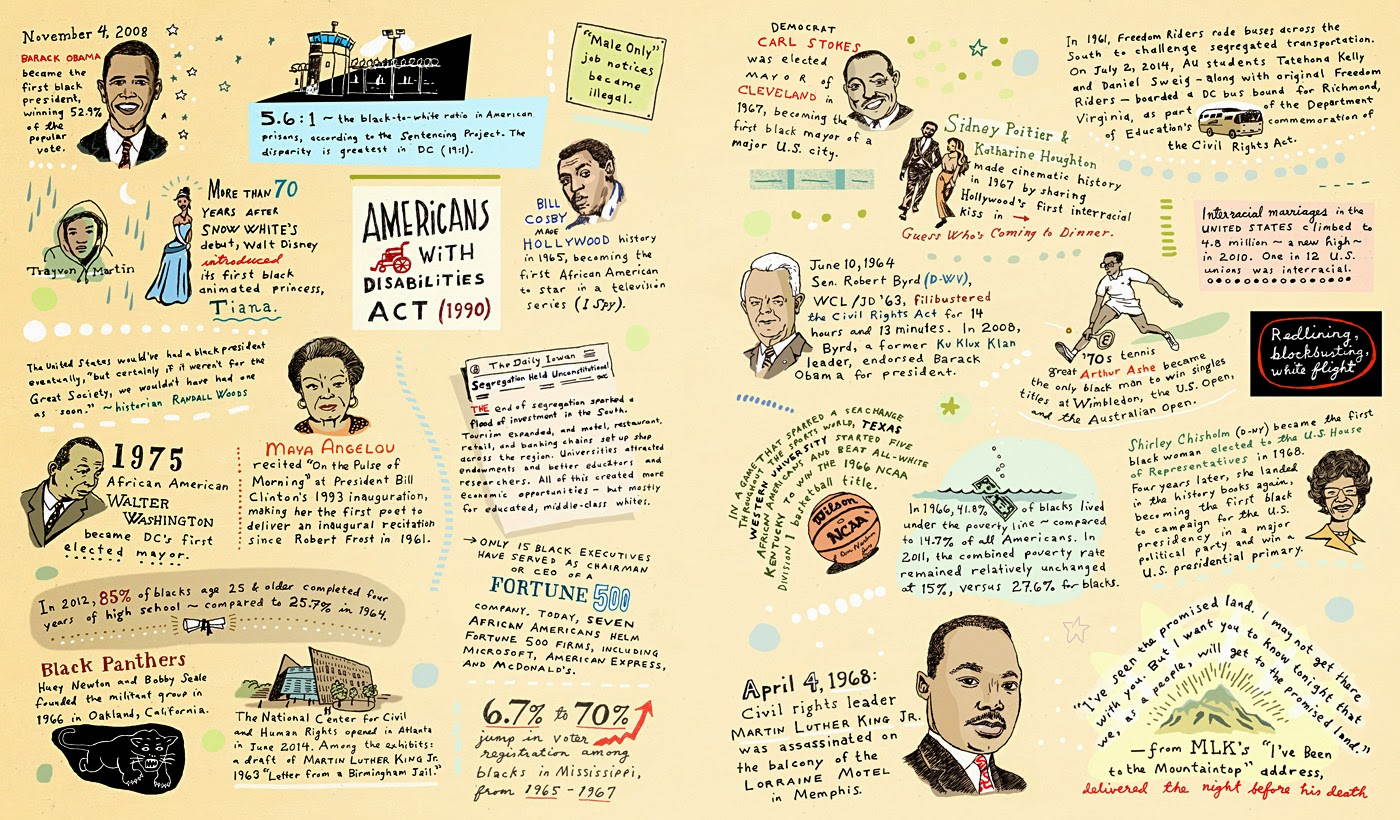 November 4, 2008
BARACK OBAMA
became the
first black
president,
winning 52.9%
of the
popular
vote.
5.6:1 ~ the black-to-white ratio in American
prisons, according to the Sentencing Project. The
disparity is greatest in DC (19:1).
"Male Only"
job notices
became
illegal.
Trayvon Martin
MORE THAN 70
YEARS AFTER
SNOW WHITE'S
debut, Walt Disney
introduced
its first black
animated princess,
Tiana.
AMERICANS
WITH
DISABILITIES
ACT (1990)
BILL
COSBY
MADE
HOLLYWOOD history
in 1965, becoming the
first African American
to star in a television
series (I Spy).
The United States would've had a black president
eventually, "but certainly if it weren't for the
Great Society, we wouldn't have had one
as soon." ~ historian RANDALL WOODS
MAYA ANGELOU
recited "On the Pulse of
Morning" at President Bill
Clinton's 1993 inauguration,
making her the first poet to
deliver an inaugural recitation
since Robert Frost in 1961.
1975
African American
WALTER
WASHINGTON
became DC's first
elected mayor.
The Daily Iowan
Segregation Held Unconstitutional
THE end of segregation sparked a
flood of investment in the South.
Tourism expanded, and motel, restaurant,
retail, and banking chains set up shop
across the region. Universities attracted
endowments and better educators and
researchers. All of this created more
economic opportunities - but mostly
for educated, middle-class whites.
→ ONLY 15 BLACK EXECUTIVES
HAVE SERVED AS CHAIRMAN
OR CEO OF A
FORTUNE 500
COMPANY. TODAY, SEVEN
AFRICAN AMERICANS HELM
FORTUNE 500 FIRMS, INCLUDING
MICROSOFT, AMERICAN EXPRESS,
AND McDONALD'S.
In 2012, 85% of blacks age 25 & older completed four
years of high school ~ compared to 25.7% in 1964.
Black Panthers
Huey Newton and Bobby Seale
founded the militant group in
1966 in Oakland, California.
The National Center for Civil
and Human Rights opened in Atlanta
in June 2014. Among the exhibits:
a draft of MARTIN LUTHER KING Jr.
1963 "Letter from a Birmingham Jail."
6.7% to 70%
jump in voter
registration among
blacks in Mississippi,
from 1965 - 1967
DEMOCRAT
CARL STOKES
was elected
MAYOR of
CLEVELAND in
1967, becoming the
first black mayor of a
major U.S. city.
Sidney Poitier &
Katharine Houghton
made cinematic history
in 1967 by sharing
Hollywood's first interracial
kiss in →
Guess Who's Coming to Dinner.
In 1961, Freedom Riders rode buses across the
South to challenge segregated transportation.
On July 2, 2014, AU students Tatehona Kelly
and Daniel Sweig - along with original Freedom
Riders - boarded a DC bus bound for Richmond,
Virginia, as part of the Department
of Education's commemoration of
the Civil Rights Act.
Interracial marriages in the
UNITED STATES climbed to
4.8 million ~ a new high ~
in 2010. One in 12 U.S.
unions was interracial.
June 10, 1964
Sen. Robert Byrd (D-WV),
WCL/JD '63, filibustered
the Civil Rights Act for 14
hours and 13 minutes. In 2008,
Byrd, a former Ku Klux Klan
leader, endorsed Barack
Obama for president.
'70s tennis
great Arthur Ashe became
the only black man to win singles
titles at Wimbledon, the U.S. Open,
and the Australian Open.
Redlining,
blockbusting,
white flight
IN A GAME THAT SPARKED A SEA CHANGE
THROUGHOUT THE SPORTS WORLD, TEXAS
WESTERN UNIVERSITY STARTED FIVE
AFRICAN AMERICANS AND BEAT ALL-WHITE
KENTUCKY TO WIN THE 1966 NCAA
DIVISION 1 basketball title.
Wilson
NCAA
In 1966, 41.8% of blacks lived
under the poverty line ~ compared
to 14.7% of all Americans. In
2011, the combined poverty rate
remained relatively unchanged
at 15%, versus 27.6% for blacks.
Shirley Chisholm (D-NY) became the first
black woman elected to the U.S. House
of Representatives in 1968.
Four years later, she landed
in the history books again,
becoming the first black
to campaign for the U.S.
presidency in a major
political party and win a
U.S. presidential primary.
April 4, 1968:
Civil rights leader
MARTIN LUTHER KING JR.
was assassinated on
the balcony of the
LORRAINE MOTEL
in Memphis.
"I've seen the promised land. I may not get there
with you. But I want you to know tonight that
we, as a people, will get to the promised land."
— from MLK's "I've Been
to the Mountaintop" address,
delivered the night before his death